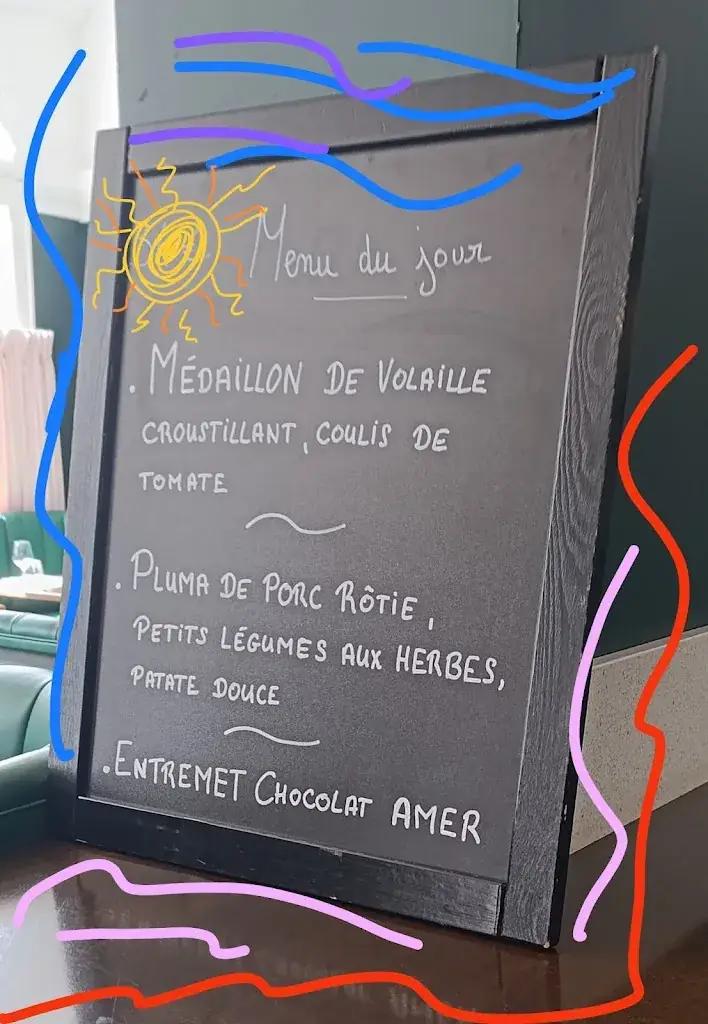 Menu du jour
. MÉDAILLON DE VOLAILLE
CROUSTILLANT, COULIS DE
TOMATE
. PLUMA DE PORC RÔTIE,
PETITS LÉGUMES AUX HERBES,
PATATE DOUCE
. ENTREMET CHOCOLAT AMER